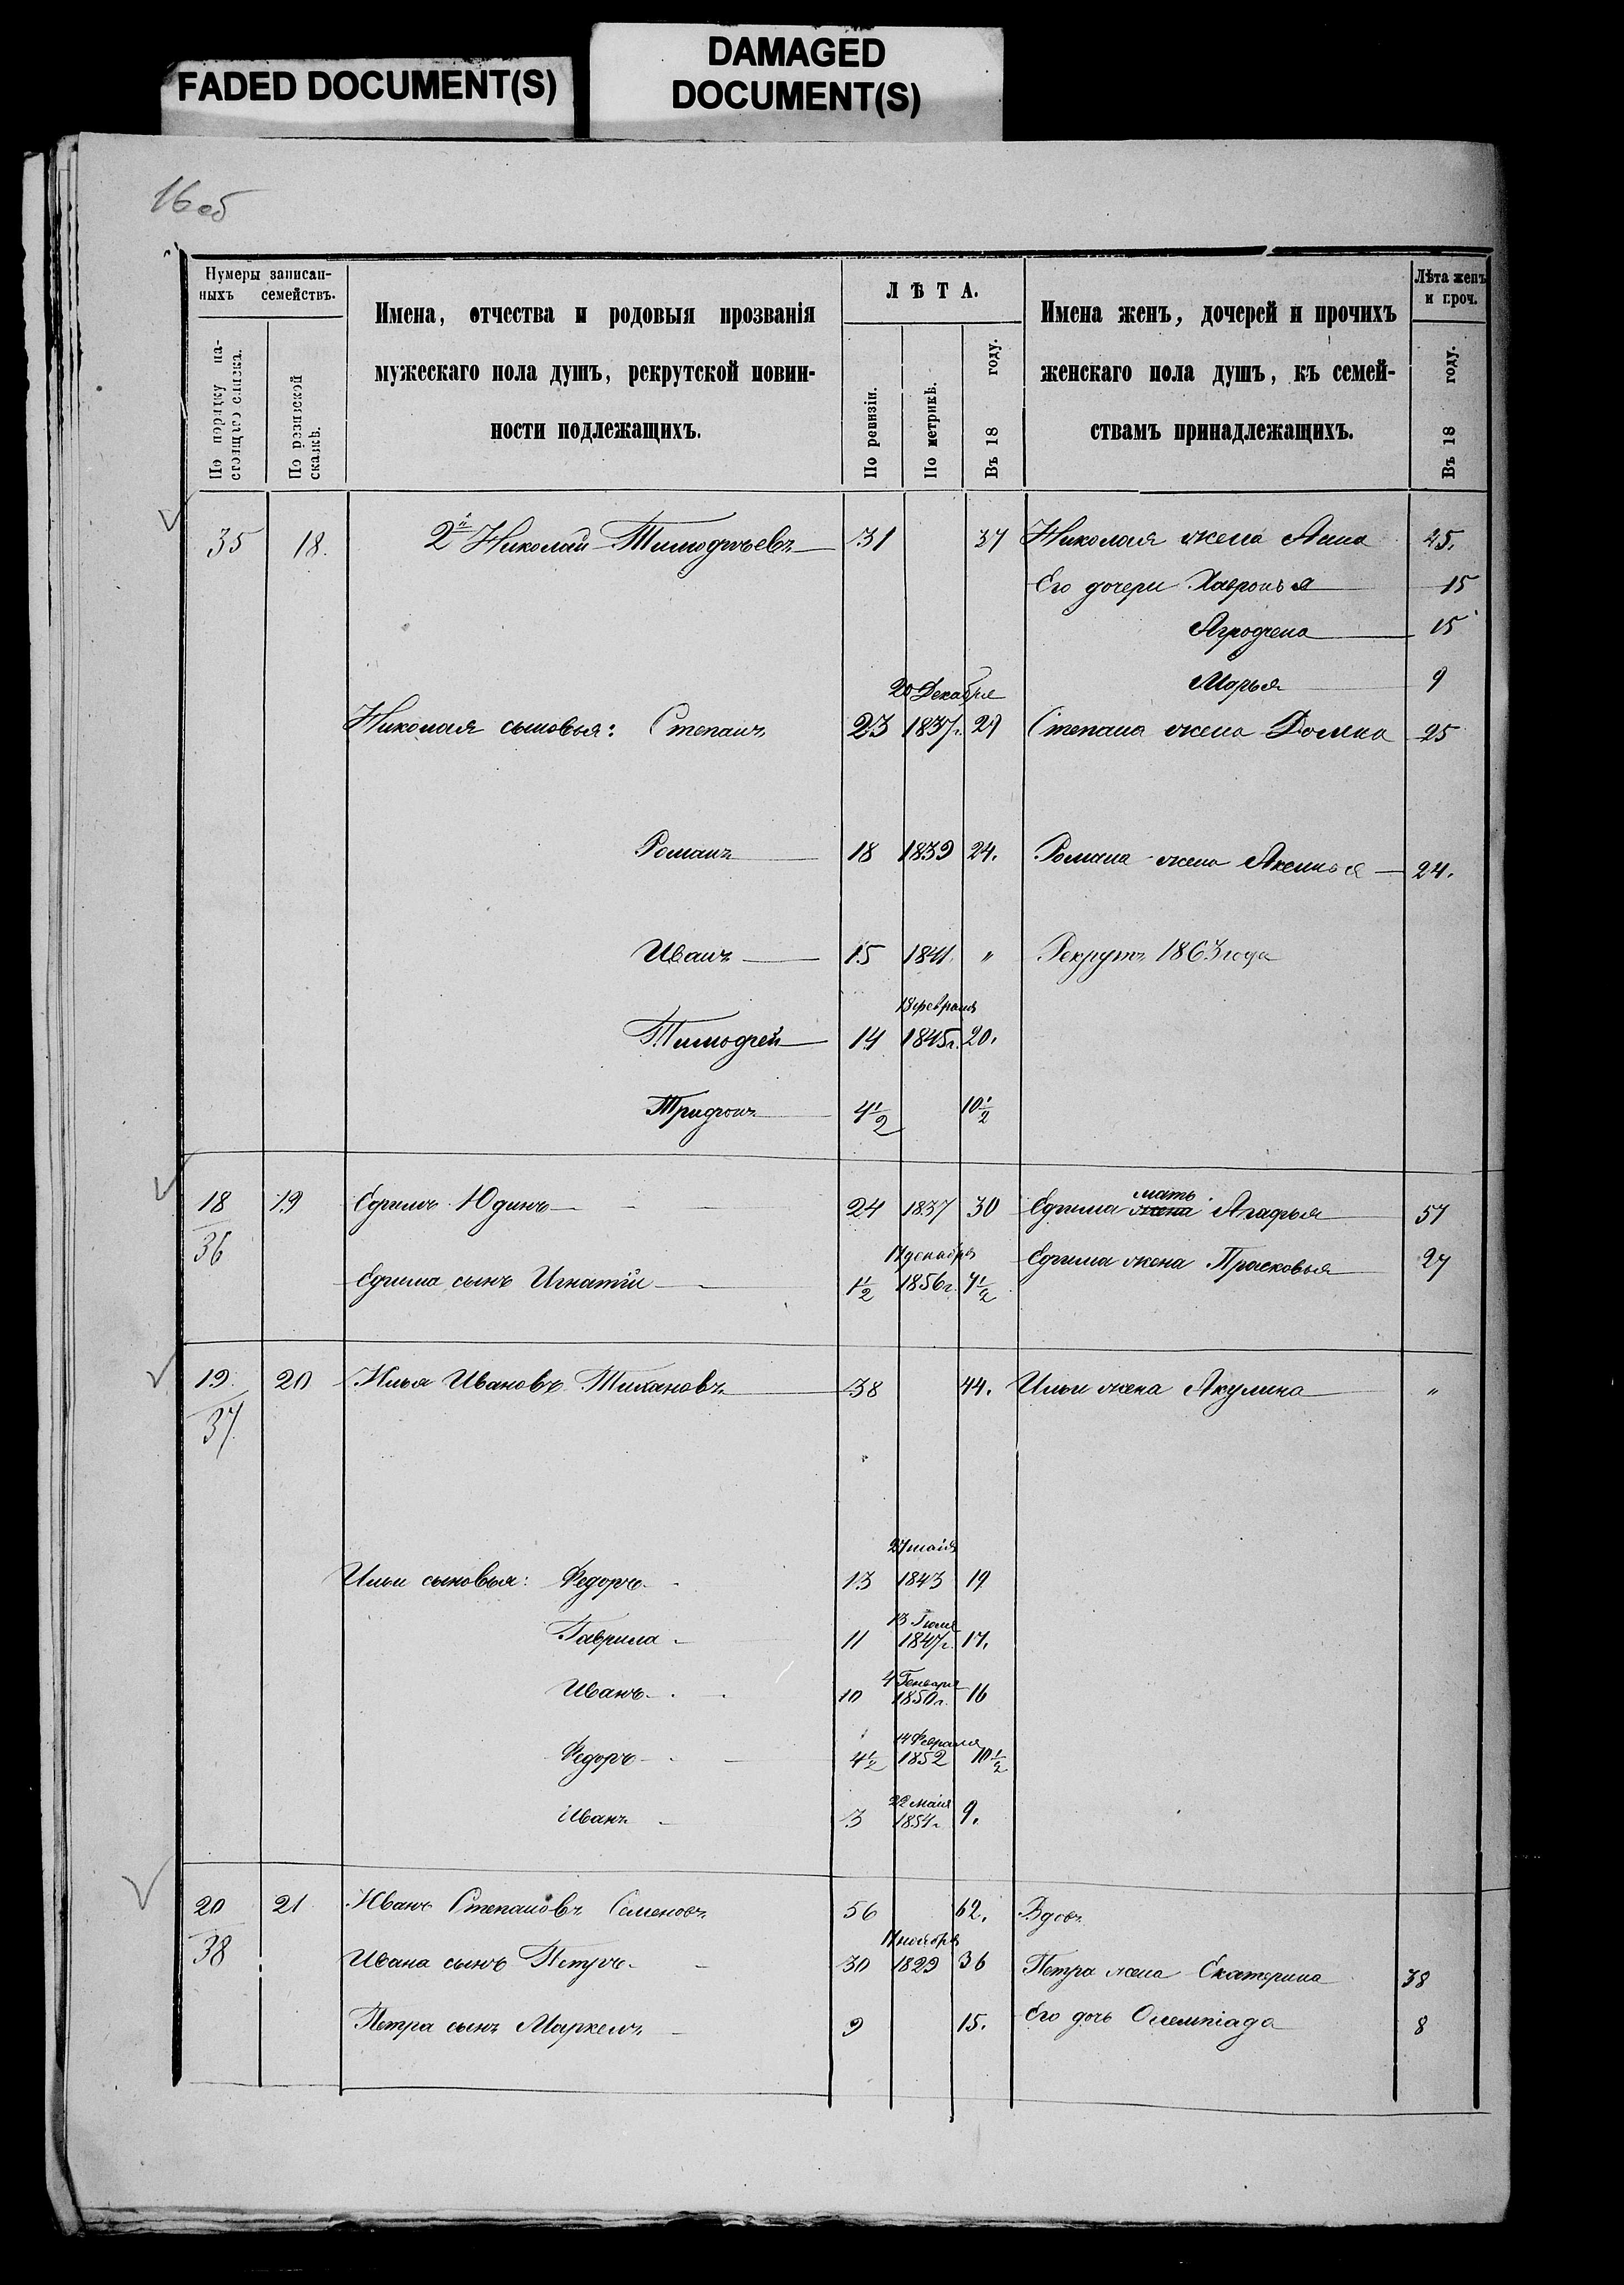 FADED DOCUMENT(S)
DAMAGED
DOCUMENT(S)
16 об
Нумеры записан-
ныхъ семействъ.
По порядку на-
стоящаго списка.
По ревизской
сказкѣ.
Имена, отчества и родовыя прозванія
мужескаго пола душъ, рекрутской повин-
ности подлежащихъ.
ЛѢТА.
По ревизіи.
По метрикѣ.
Въ 18 году.
Имена женъ, дочерей и прочихъ
женскаго пола душъ, къ семей-
ствамъ принадлежащихъ.
Лѣта женъ
и проч.
Въ 18 году.
35 18. 2й Николай Тимофѣевъ 31 37 Николая жена Анна 45.
Его дочери Хавронья 15
Агрофена 15
Марья 9
20 Декабря
Николая сыновья: Степанъ 23 1837г. 29 Степана жена Домна 25
Романъ 18 1839 24. Романа жена Аксинья 24.
Иванъ 15 1841. " Рекрутъ 1863 года
18 февраля
Тимофей 14 1845г. 20.
Трифонъ 4½ 10½
18 19 Ефимъ Юдинъ 24 1837 30 Ефима жена мать Агафья 57
36
17 декабря
Ефима сынъ Игнатій 1½ 1856г. 7½ Ефима жена Прасковья 27
19. 20 Илья Ивановъ Тихановъ 38 44. Ильи жена Акулина "
37
27 майя
Ильи сыновья: Федоръ 13 1843 19
13 Іюля
Гаврила 11 1847г. 17.
4 Генваря
Иванъ 10 1850г. 16
14 Февраля
Федоръ 4½ 1852 10½
22 майя
Иванъ 3 1854г. 9.
20 21 Иванъ Степановъ Семеновъ 56 62. Вдовъ
38
17 ноября
Ивана сынъ Петръ 30 1829 36 Петра жена Екатерина 38
Петра сынъ Маркелъ 9 15. Его дочь Олемпіада 8